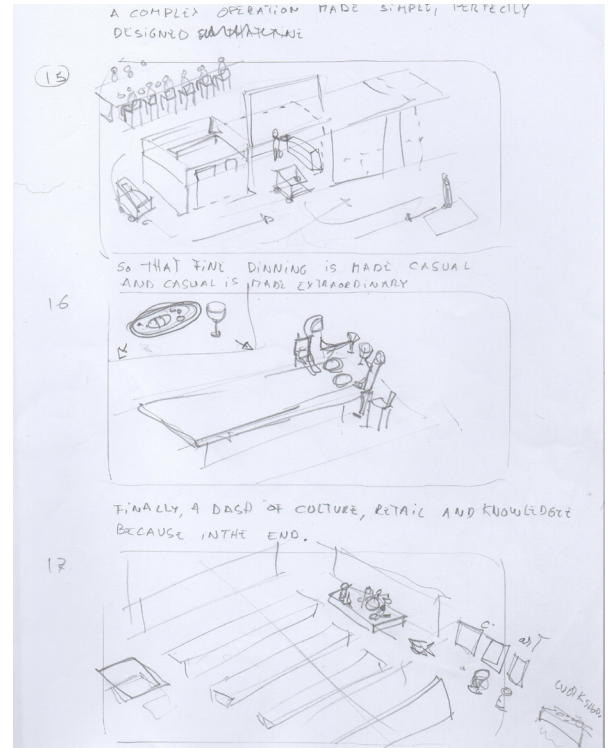 A COMPLEX OPERATION MADE SIMPLE, PERFECTLY
DESIGNED
15
SO THAT FINE DINNING IS MADE CASUAL
AND CASUAL IS MADE EXTRAORDINARY
16
FINALLY, A DASH OF CULTURE, RETAIL AND KNOWLEDGE
BECAUSE IN THE END.
17
art
WORKSHOP